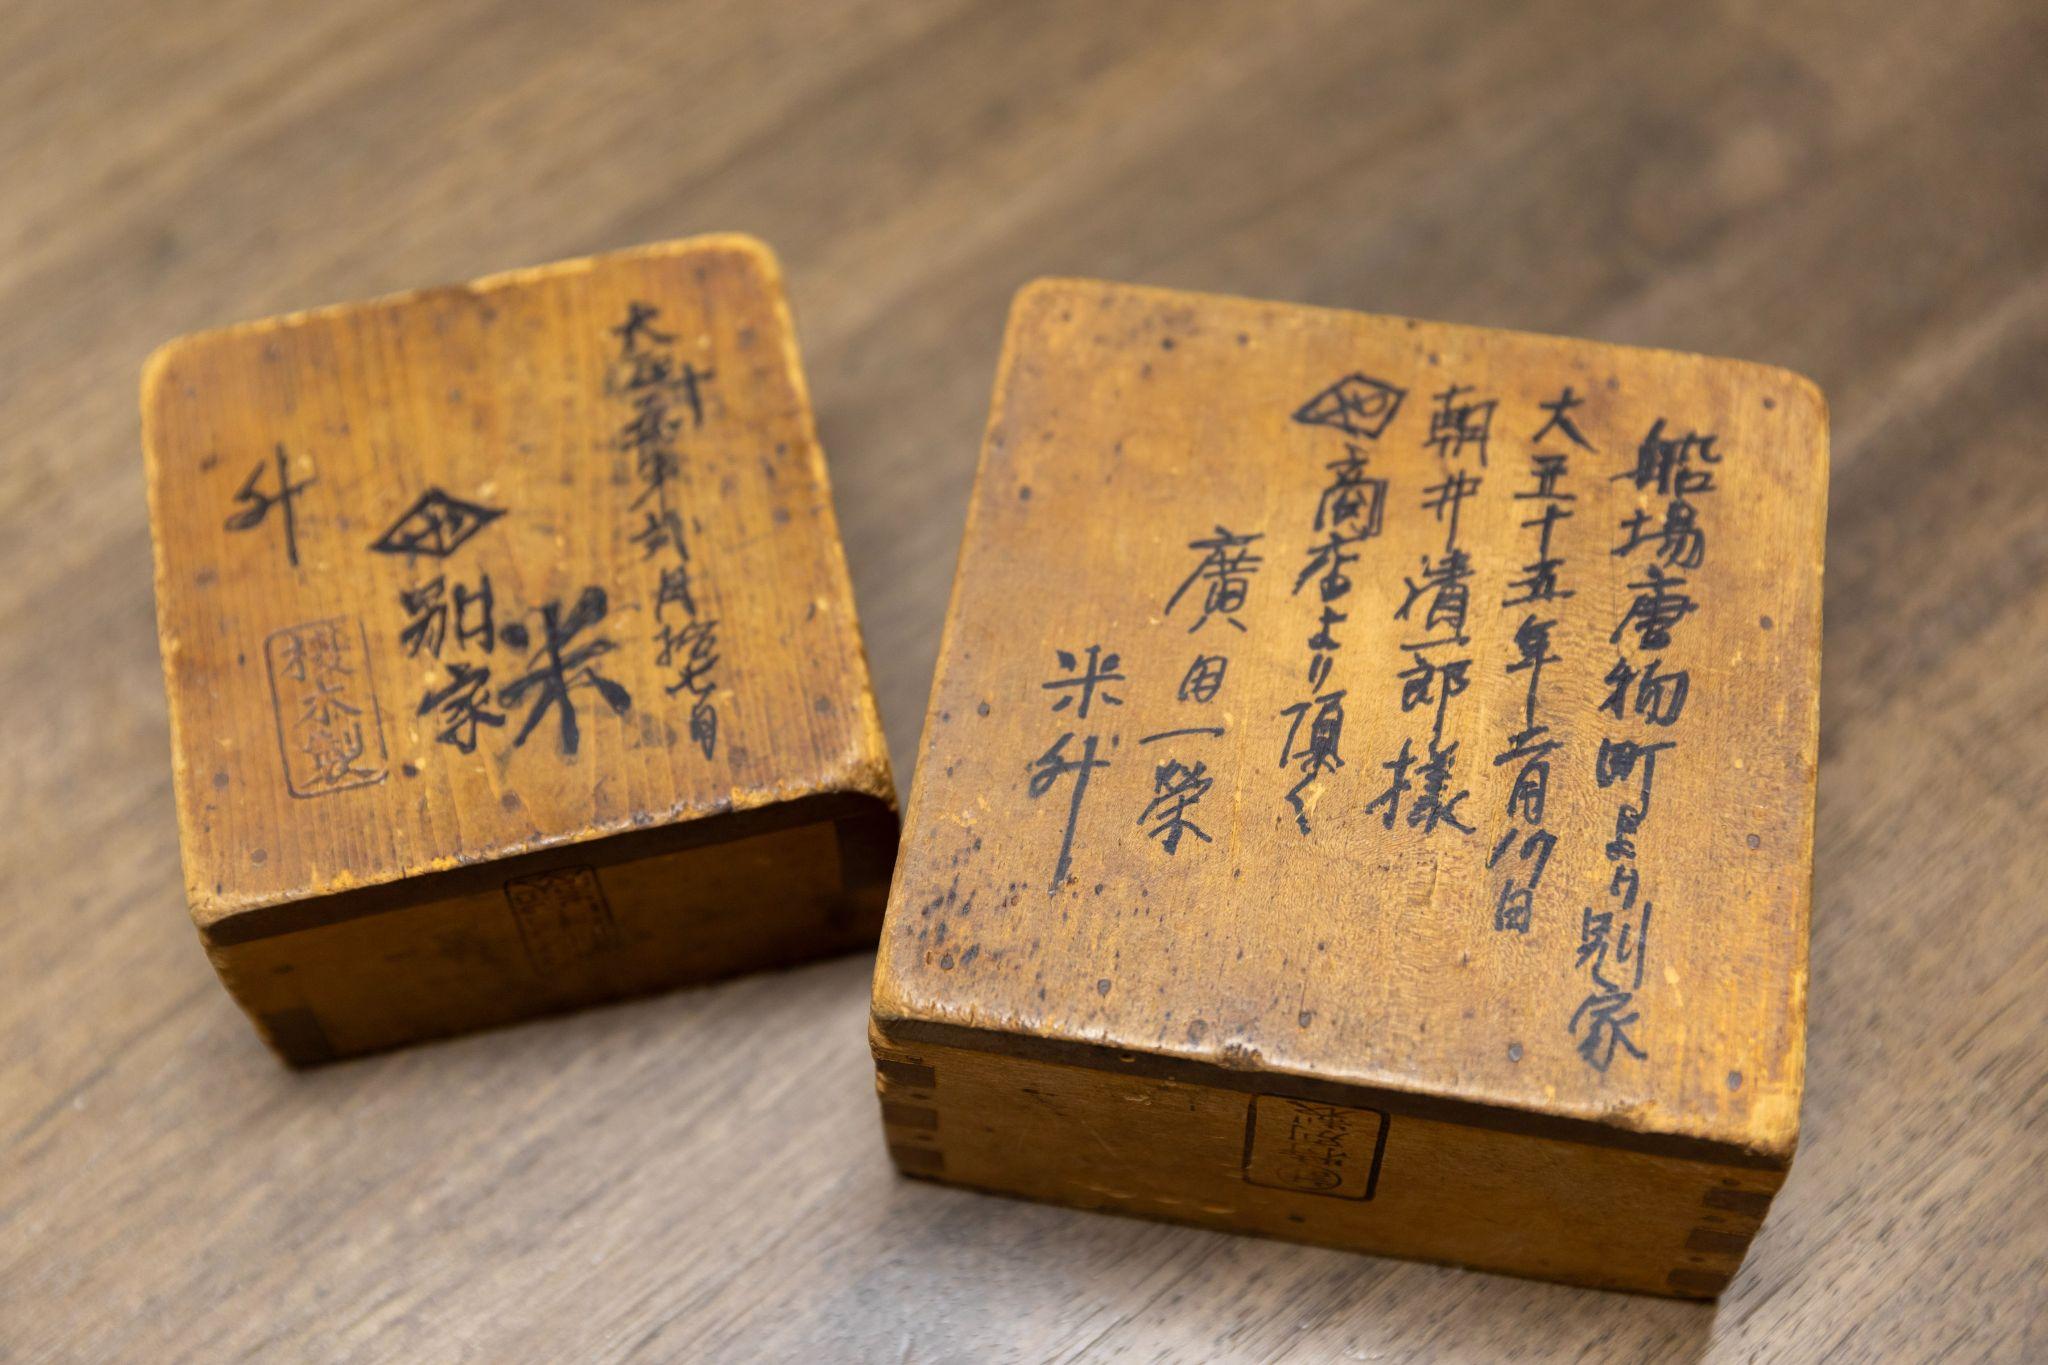 大正十五年弐月拾七日
米
別家
升
検木製
船場唐物町より別家
大正十五年二月十七日
朝井清一郎様
商店より頂く
廣田一榮
米升